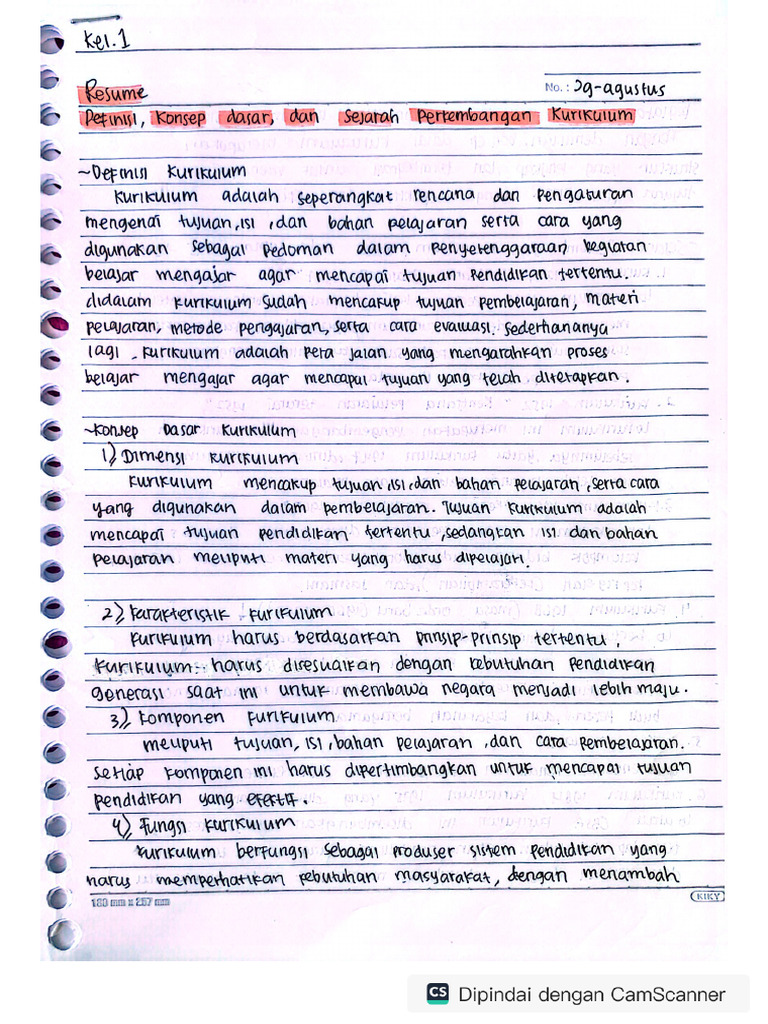 Kel.1
No.: 29-agustus
Resume
Definisi, Konsep dasar, dan Sejarah Perkembangan Kurikulum
~Definisi Kurikulum
Kurikulum adalah seperangkat rencana dan Pengaturan
mengenai tujuan, isi, dan bahan pelajaran serta cara yang
digunakan sebagai Pedoman dalam Penyelenggaraan kegiatan
belajar mengajar agar mencapai tujuan Pendidikan tertentu.
didalam kurikulum sudah mencakup tujuan pembelajaran, materi
pelajaran, metode pengajaran, serta cara evaluasi. Sederhananya
lagi, kurikulum adalah peta jalan yang mengarahkan proses
belajar mengajar agar mencapai tujuan yang telah ditetapkan.
~Konsep Dasar Kurikulum
1) Dimensi kurikulum
kurikulum mencakup tujuan, isi, dan bahan pelajaran, serta cara
yang digunakan dalam pembelajaran. Tujuan kurikulum adalah
mencapai tujuan pendidikan tertentu, sedangkan isi dan bahan
pelajaran meliputi materi yang harus dipelajari.
2) Karakteristik kurikulum
kurikulum harus berdasarkan prinsip-prinsip tertentu,
kurikulum harus disesuaikan dengan kebutuhan Pendidikan
generasi saat ini untuk membawa negara menjadi lebih maju.
3) Komponen kurikulum
meliputi tujuan, isi, bahan pelajaran, dan cara pembelajaran.
setiap komponen ini harus dipertimbangkan untuk mencapai tujuan
pendidikan yang efektif.
4) Fungsi kurikulum
kurikulum berfungsi sebagai produser sistem pendidikan yang
harus memperhatikan kebutuhan masyarakat, dengan menambah
180 mm x 257 mm
KIKY
CS Dipindai dengan CamScanner